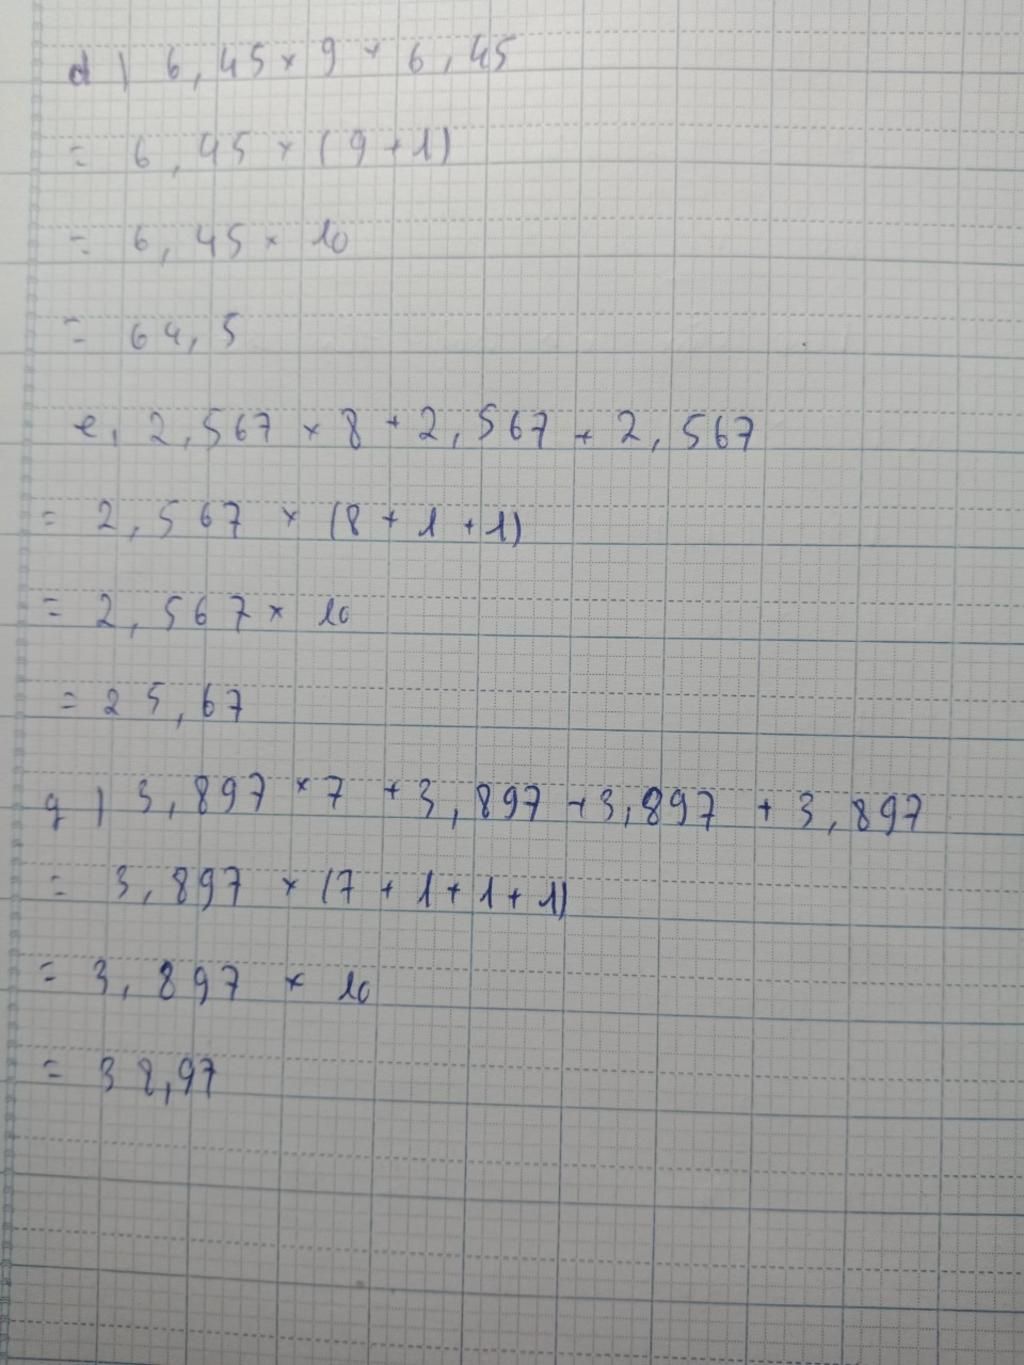 d) 6,45 × 9 + 6,45
= 6,45 × (9 + 1)
= 6,45 × 10
= 64,5
e, 2,567 × 8 + 2,567 + 2,567
= 2,567 × (8 + 1 + 1)
= 2,567 × 10
= 25,67
g) 3,897 × 7 + 3,897 + 3,897 + 3,897
= 3,897 × (7 + 1 + 1 + 1)
= 3,897 × 10
= 38,97